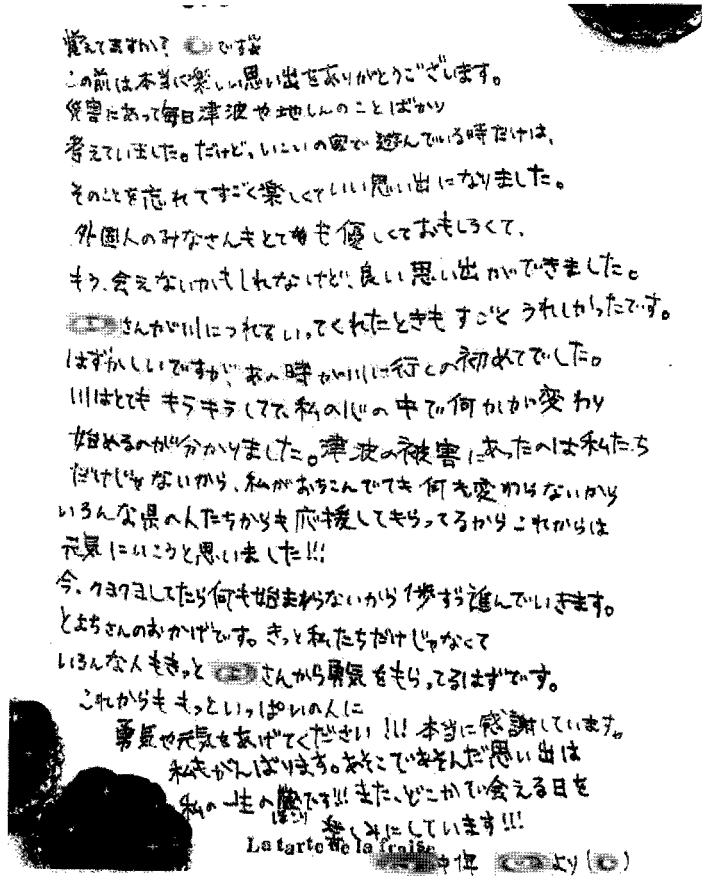 覚えてますか? です
この前は本当に楽しい思い出をありがとうございます。
災害にあって毎日津波や地しんのことばかり
考えていました。だけど、いこいの家で遊んでいる時だけは、
そのことを忘れてすごく楽しくていい思い出になりました。
外国人のみなさんもとても優しくておもしろくて、
もう、会えないかもしれないけど、良い思い出ができました。
さんが川につれていってくれたときもすごくうれしかったです。
はずかしいですが、あの時が川に行くの初めてでした。
川はとてもキラキラしてて、私の心の中で何かが変わり
始めるのが分かりました。津波の被害にあったのは私たち
だけじゃないから、私がおちこんでても何も変わらないから
いろんな県の人たちからも応援してもらってるからこれからは
元気にいこうと思いました!!!
今、クヨクヨしてたら何も始まらないから1歩ずつ進んでいきます。
とよちさんのおかげです。きっと私たちだけじゃなくて
いろんな人もきっと さんから勇気をもらってるはずです。
これからももっといっぱいの人に
勇気や元気をあげてください!!! 本当に感謝しています。
私もがんばります。あそこであそんだ思い出は
私の一生の です!!! また、どこかで会える日を
ほこり
楽しみにしています!!!
La tarte de la fraise
中1年 より( )